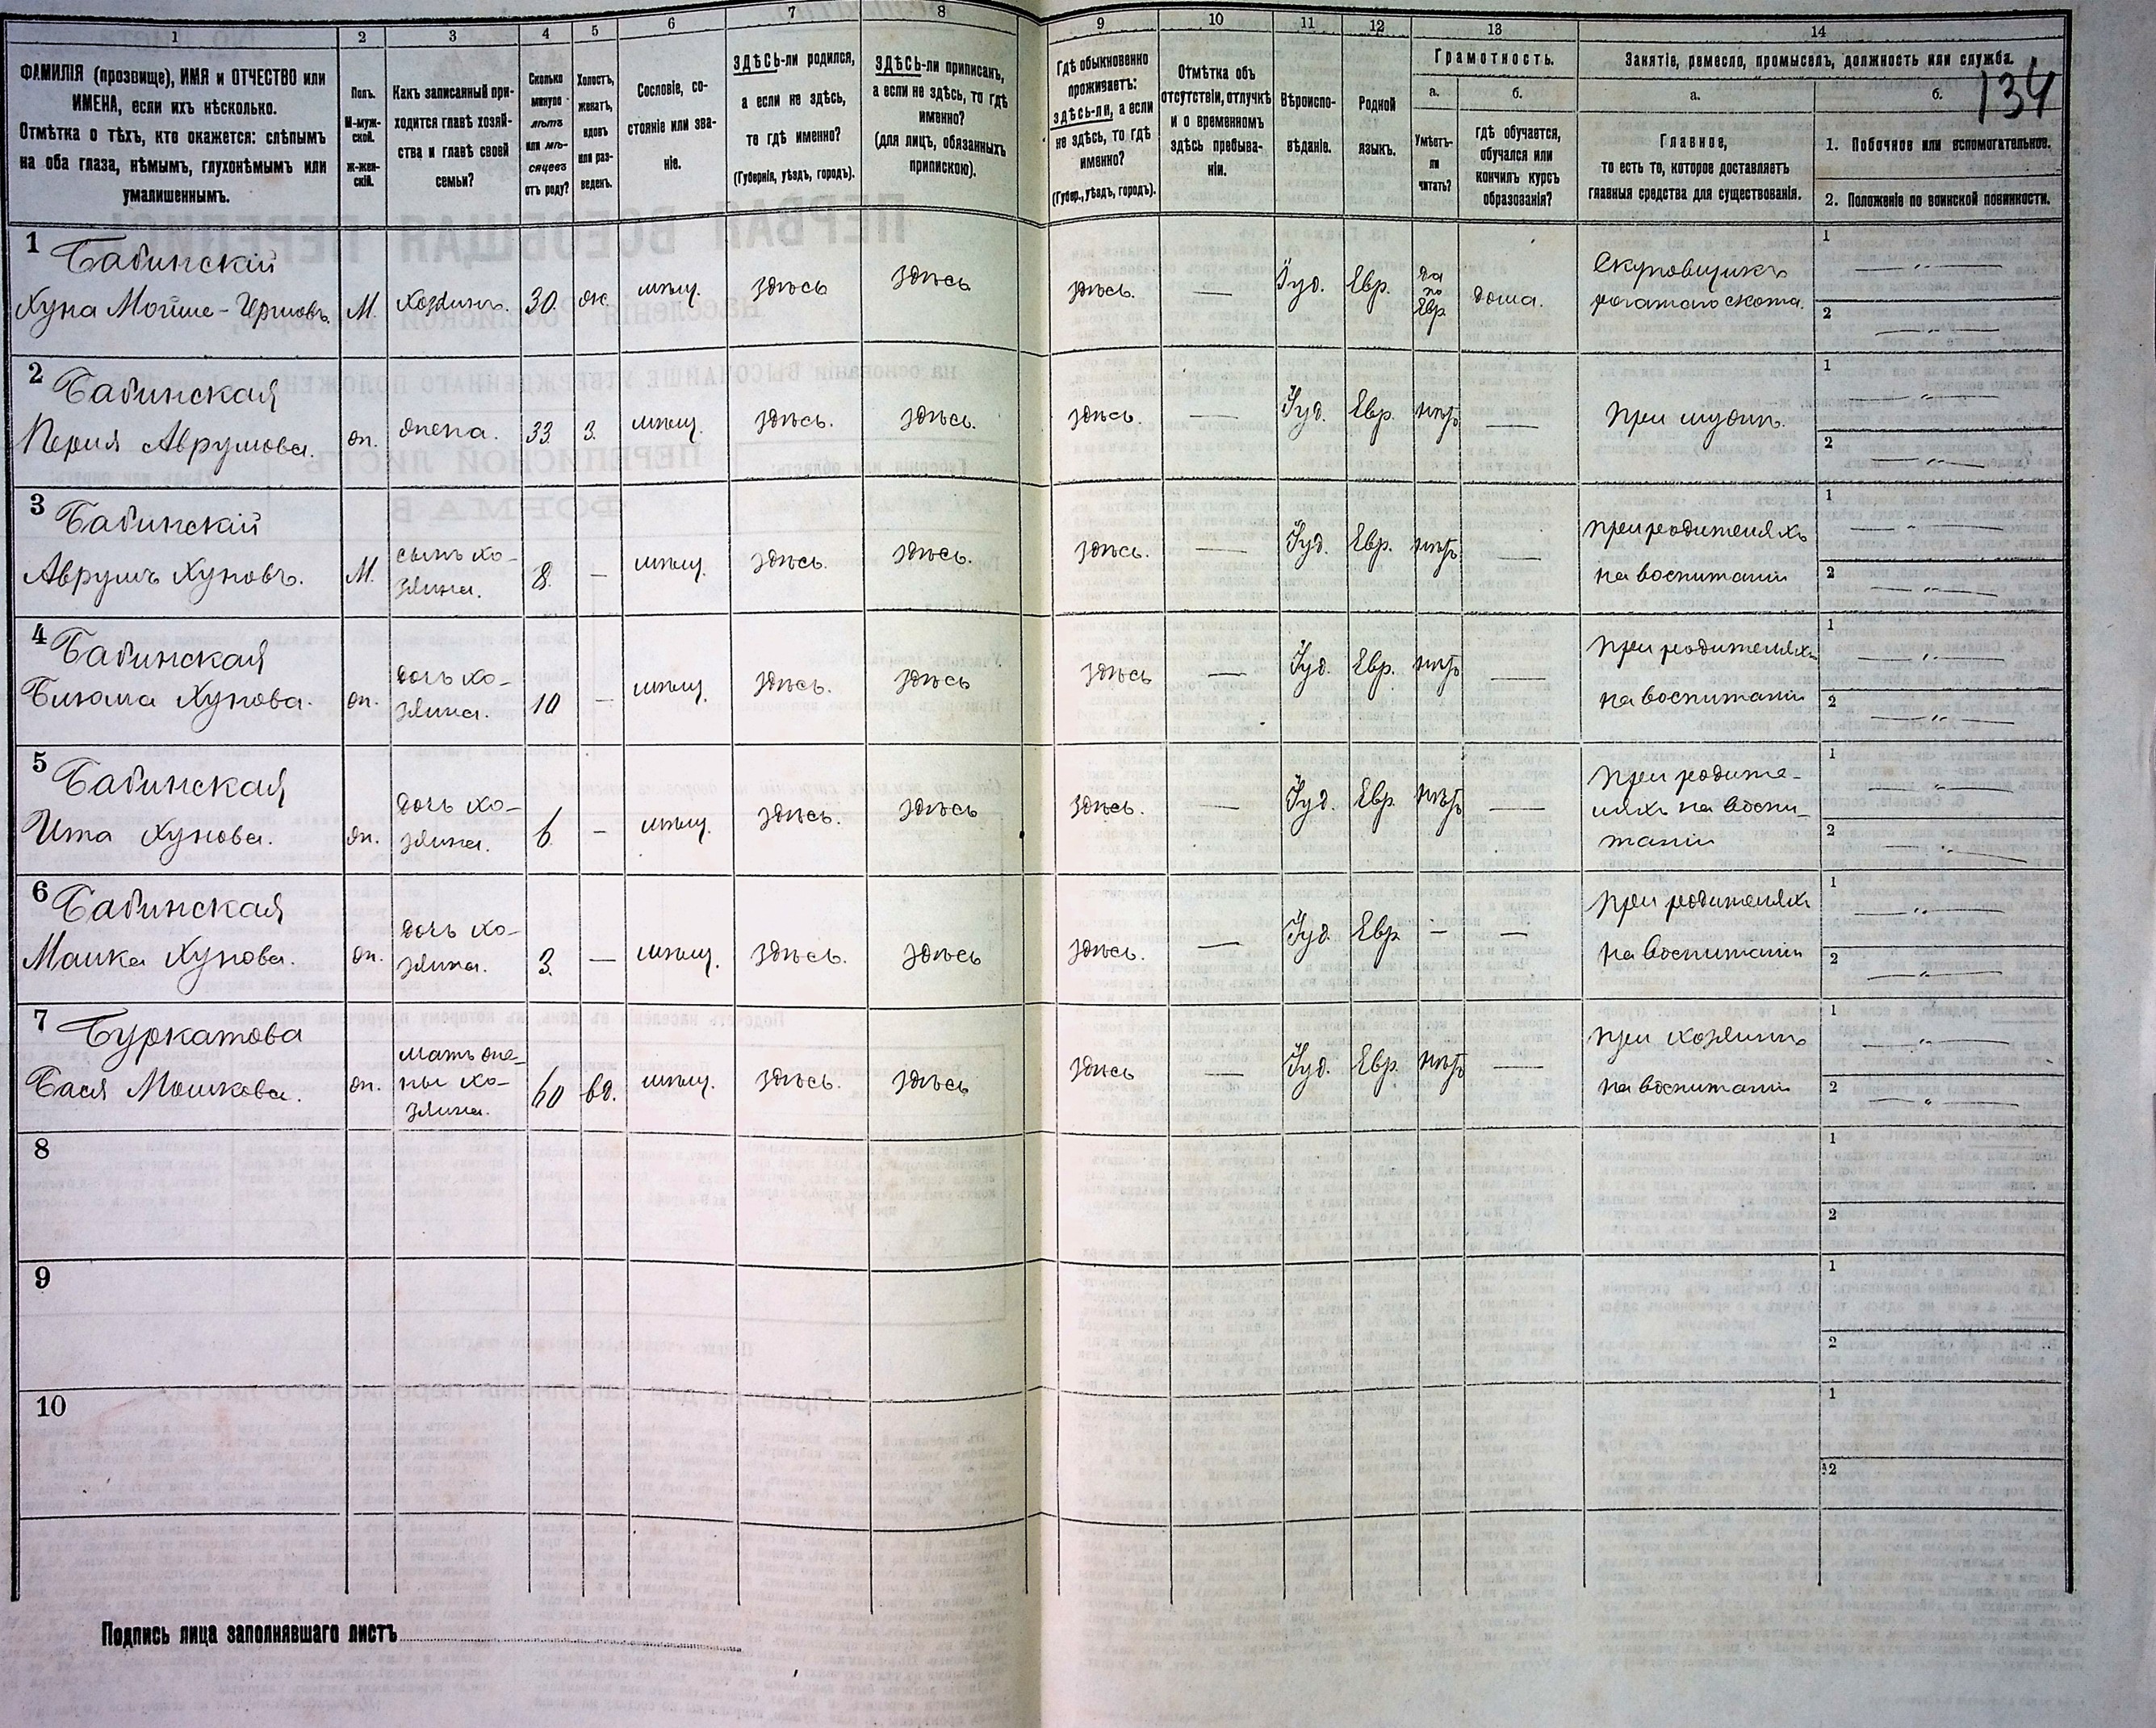 1 2 3 4 5 6 7 8 9 10 11 12 13 14
134
ФАМИЛІЯ (прозвище), ИМЯ и ОТЧЕСТВО или
ИМЕНА, если ихъ нѣсколько.
Отмѣтка о тѣхъ, кто окажется: слѣпымъ
на оба глаза, нѣмымъ, глухонѣмымъ или
умалишеннымъ.
Полъ.
М-муж-
ской.
Ж-жен-
скій.
Какъ записанный при-
ходится главѣ хозяй-
ства и главѣ своей
семьи?
Сколько
минуло
лѣтъ
или мѣ-
сяцевъ
отъ роду?
Холостъ,
женатъ,
вдовъ
или раз-
веденъ.
Сословіе, со-
стояніе или зва-
ніе.
ЗДѢСЬ-ли родился,
а если не здѣсь,
то гдѣ именно?
(Губернія, уѣздъ, городъ).
ЗДѢСЬ-ли приписанъ,
а если не здѣсь, то гдѣ
именно?
(для лицъ, обязанныхъ
припискою).
Гдѣ обыкновенно
проживаетъ:
здѣсь-ли, а если
не здѣсь, то гдѣ
именно?
(Губер., уѣздъ, городъ).
Отмѣтка объ
отсутствіи, отлучкѣ
и о временномъ
здѣсь пребыва-
ніи.
Вѣроиспо-
вѣданіе.
Родной
языкъ.
Грамотность.
а.
Умѣетъ-
ли
читать?
б.
гдѣ обучается,
обучался или
кончилъ курсъ
образованія?
Занятіе, ремесло, промыселъ, должность или служба.
а.
Главное,
то есть то, которое доставляетъ
главныя средства для существованія.
б.
1. Побочное или вспомогательное.
2. Положеніе по воинской повинности.
1 Бабинскій
Хуна Мойше-Ѣрмовъ. М. хозяинъ. 30. ж. мѣщ. здѣсь здѣсь здѣсь. — Іуд. Евр. да по Евр дома. Скуповщикъ
рогатаго скота.
1 — " —
2 — " —
2 Бабинская
Перля Аврумова. ж. жена. 33. З. мѣщ. здѣсь. здѣсь. здѣсь. — Іуд. Евр. нѣтъ — при мужѣ.
1 — " —
2 — " —
3 Бабинскій
Аврумъ Хуновъ. М. сынъ хо-
зяина. 8. — мѣщ. здѣсь. здѣсь. здѣсь. — Іуд. Евр. нѣтъ. — при родителяхъ
на воспитаніи
1 — " —
2 — " —
4 Бабинская
Блюма Хунова. ж. дочь хо-
зяина. 10 — мѣщ. здѣсь. здѣсь здѣсь — Іуд. Евр. нѣтъ — при родителяхъ
на воспитаніи
1 — " —
2 — " —
5 Бабинская
Ита Хунова. ж. дочь хо-
зяина. 6. — мѣщ. здѣсь. здѣсь здѣсь. — Іуд. Евр. нѣтъ — при родите-
ляхъ на воспи-
таніи
1 — " —
2 — " —
6 Бабинская
Малка Хунова. ж. дочь хо-
зяина. 3. — мѣщ. здѣсь. здѣсь здѣсь. — Іуд. Евр — — при родителяхъ
на воспитаніи
1 — " —
2 — " —
7 Буркатова
Бася Мошкова. ж. мать же-
ны хо-
зяина. 60 вд. мѣщ. здѣсь. здѣсь здѣсь — Іуд. Евр. нѣтъ — при хозяинѣ
на воспитаніи
1 — " —
2 — " —
8
1
2
9
1
2
10
1
2
Подпись лица заполнявшаго листъ